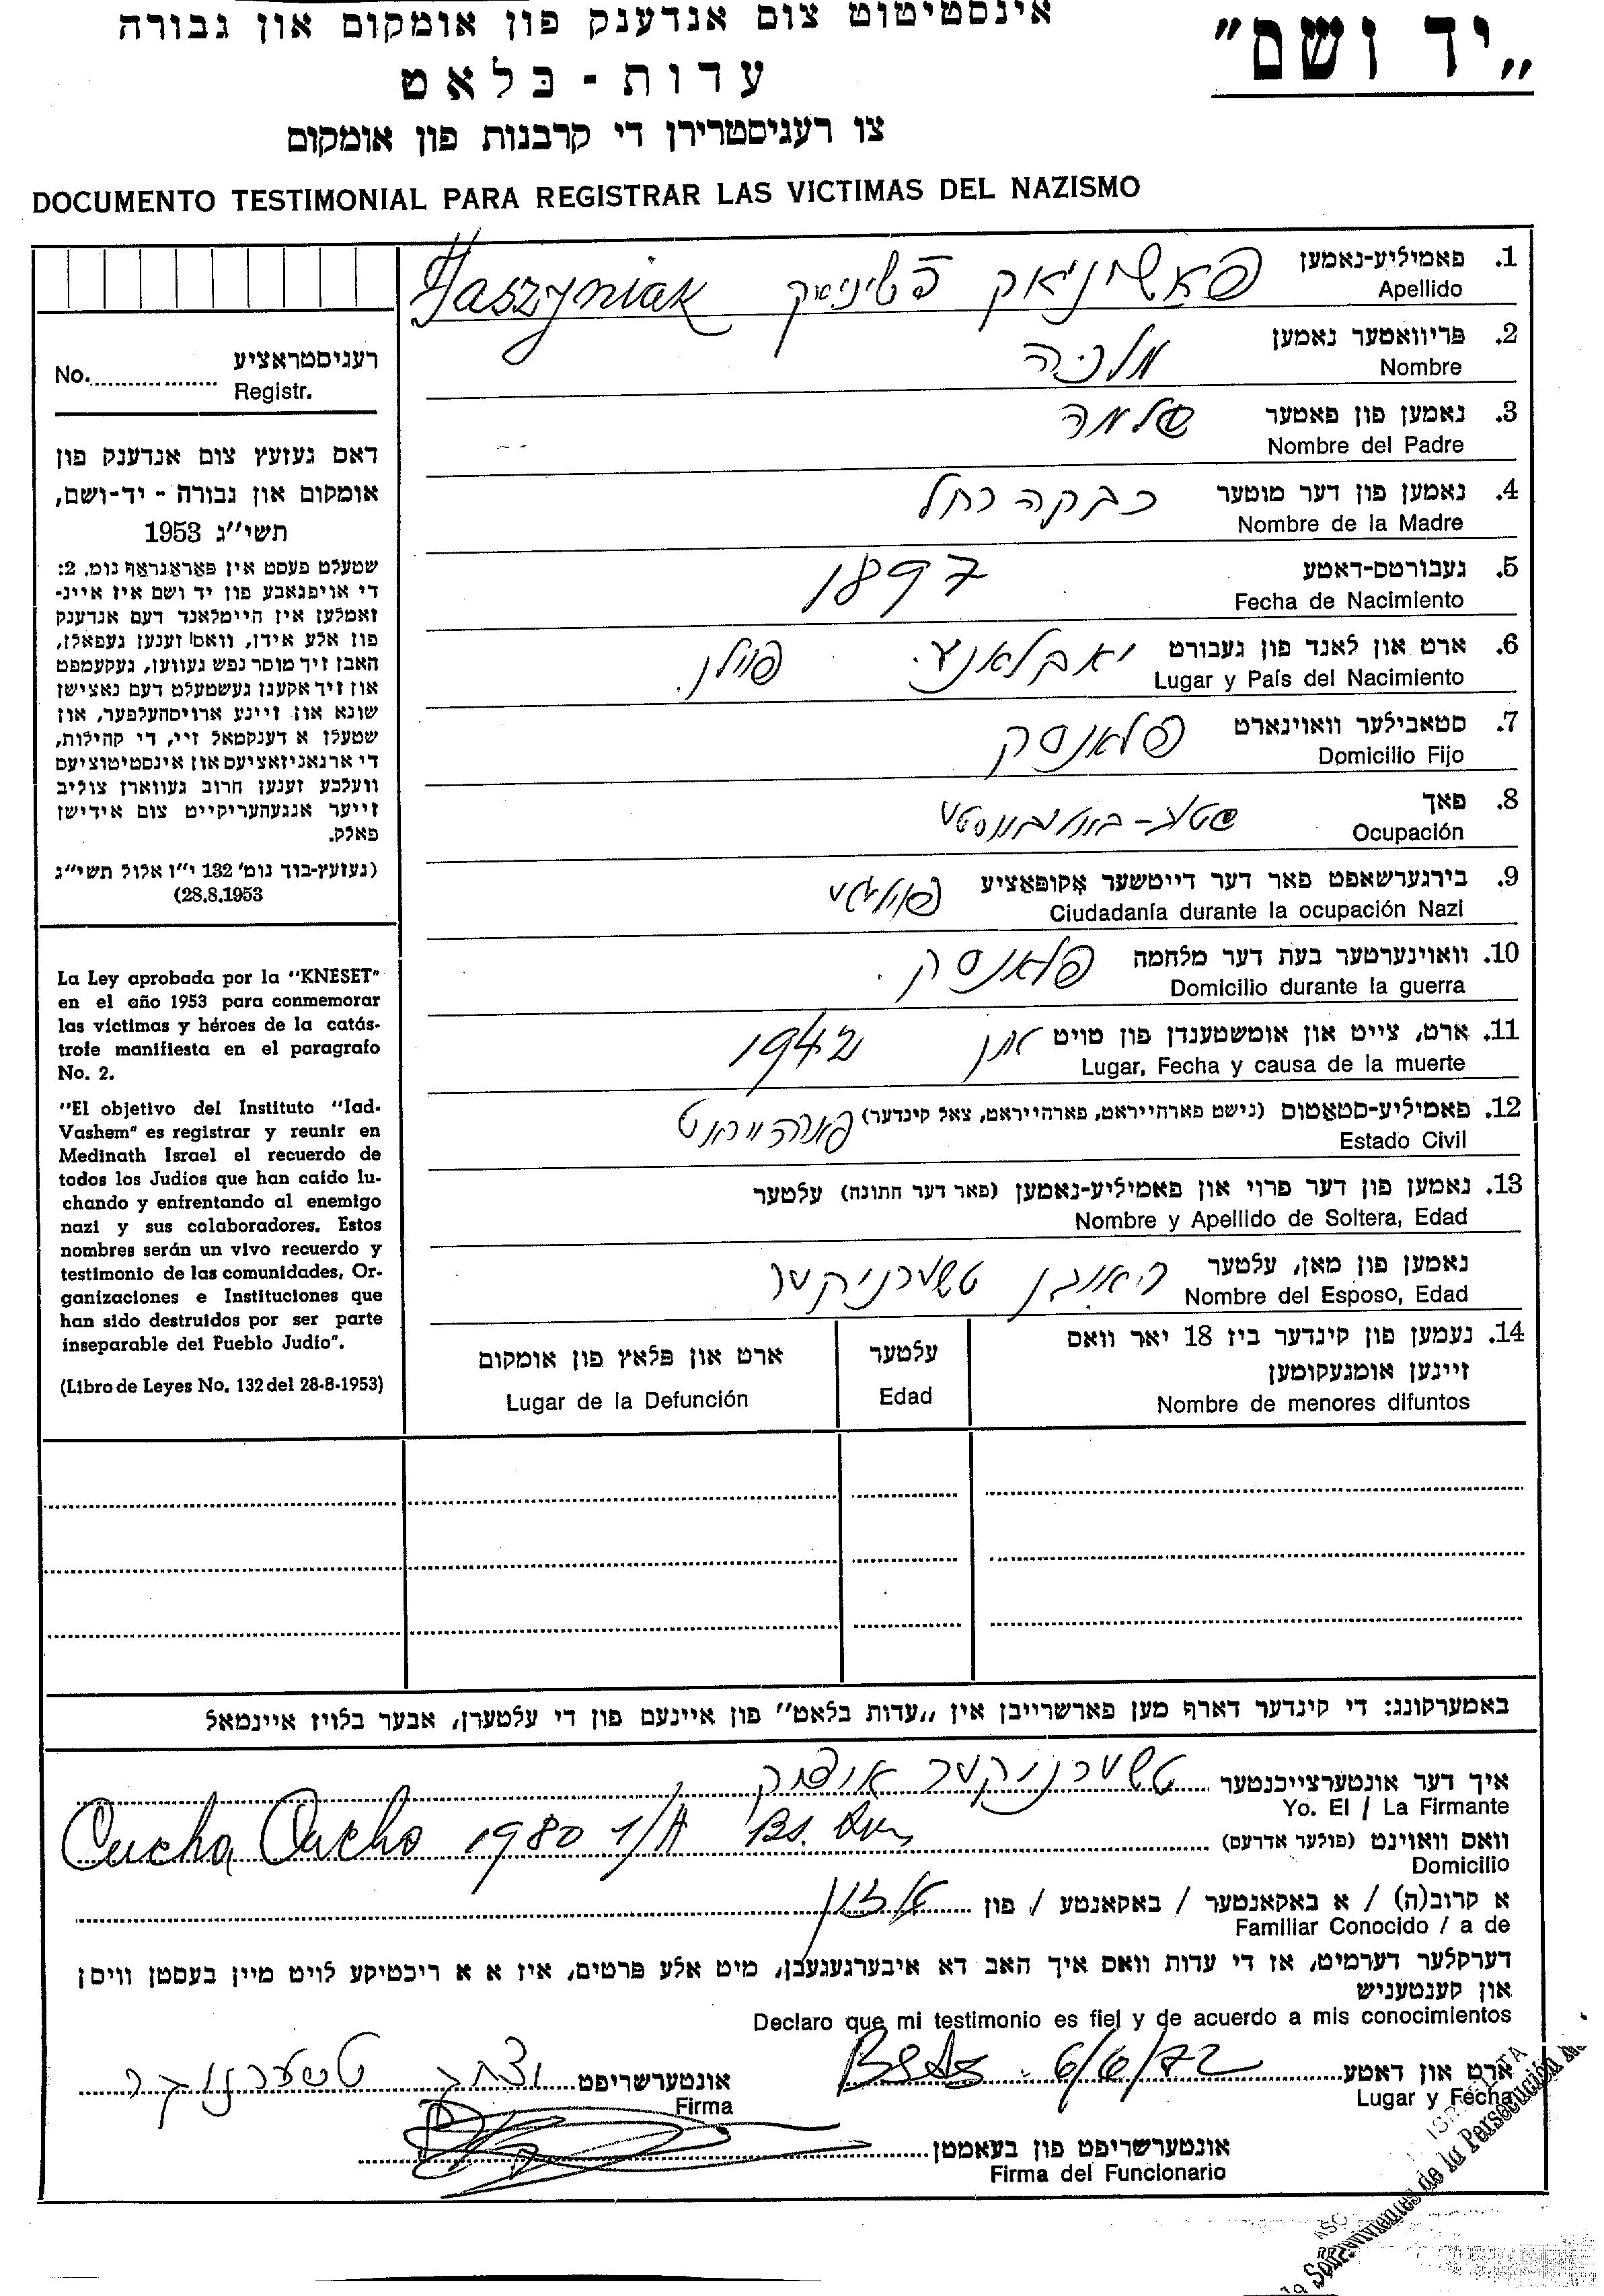 „יד ושם"
אינסטיטוט צום אנדענק פון אומקום און גבורה
עדות - בלאט
צו רעגיסטרירן די קרבנות פון אומקום
DOCUMENTO TESTIMONIAL PARA REGISTRAR LAS VICTIMAS DEL NAZISMO
1. פאמיליע-נאמען
Apellido
2. פריוואטער נאמען מלכה
Nombre
3. נאמען פון פאטער שלמה
Nombre del Padre
4. נאמען פון דער מוטער רבקה רחל
Nombre de la Madre
5. געבורטס-דאטע 1897
Fecha de Nacimiento
6. ארט און לאנד פון געבורט פוילן.
Lugar y País del Nacimiento
7. סטאבילער וואוינארט פלאנסק
Domicilio Fijo
8. פאך
Ocupación
9. בירגערשאפט פאר דער דייטשער אקופאציע
Ciudadanía durante la ocupación Nazi
10. וואוינערטער בעת דער מלחמה פלאנסק.
Domicilio durante la guerra
11. ארט, צייט און אומשטענדן פון טויט אין 1942
Lugar, Fecha y causa de la muerte
12. פאמיליע-סטאטוס (נישט פארהייראט, פארהייראט, צאל קינדער) פארהייראט
Estado Civil
13. נאמען פון דער פרוי און פאמיליע-נאמען (פאר דער חתונה) עלטער
Nombre y Apellido de Soltera, Edad
נאמען פון מאן, עלטער טשערניקער
Nombre del Esposo, Edad
14. נעמען פון קינדער ביז 18 יאר וואס
זיינען אומגעקומען
Nombre de menores difuntos
עלטער
Edad
ארט און פלאץ פון אומקום
Lugar de la Defunción
רעגיסטראציע
No.
Registr.
דאס געזעץ צום אנדענק פון
אומקום און גבורה - יד-ושם,
תשי"ג 1953
שטעלט פעסט אין פאראגראף נומ. 2:
די אויפגאבע פון יד ושם איז איינ-
זאמלען אין היימלאנד דעם אנדענק
פון אלע אידן, וואס זענען געפאלן,
האבן זיך מוסר נפש געווען, געקעמפט
און זיך אקעגן געשטעלט דעם נאצישן
שונא און זיינע ארויסהעלפער, און
שטעלן א דענקמאל זיי, די קהילות,
די ארגאניזאציעס און אינסטיטוציעס
וועלכע זענען חרוב געווארן צוליב
זייער אנגעהעריקייט צום אידישן
פאלק.
(געזעץ-בוך נומ' 132 י"ז אלול תשי"ג
28.8.1953)
La Ley aprobada por la "KNESET"
en el año 1953 para conmemorar
las víctimas y héroes de la catás-
trofe manifiesta en el paragrafo
No. 2.
"El objetivo del Instituto "Iad-
Vashem" es registrar y reunir en
Medinath Israel el recuerdo de
todos los Judíos que han caído lu-
chando y enfrentando al enemigo
nazi y sus colaboradores. Estos
nombres serán un vivo recuerdo y
testimonio de las comunidades, Or-
ganizaciones e Instituciones que
han sido destruidos por ser parte
inseparable del Pueblo Judío".
(Libro de Leyes No. 132 del 28-8-1953)
באמערקונג: די קינדער דארף מען פארשרייבן אין „עדות בלאט" פון איינעם פון די עלטערן, אבער בלויז איינמאל
איך דער אונטערצייכנטער טשערניקער
Yo. El / La Firmante
וואס וואוינט (פולער אדרעס) Cucha Cucha 1980 1/A Bs.
Domicilio
א קרוב(ה) / א באקאנטער / באקאנטע / פון
Familiar Conocido / a de
דערקלער דערמיט, אז די עדות וואס איך האב דא איבערגעגעבן, מיט אלע פרטים, איז א א ריכטיקע לויט מיין בעסטן וויסן
און קענטעניש
Declaro que mi testimonio es fiel y de acuerdo a mis conocimientos
ארט און דאטע 6/6/72 אונטערשריפט יצחק טשערניקער
Lugar y Fecha
Firma
אונטערשריפט פון בעאמטן
Firma del Funcionario
Sobrevivientes de la Persecución